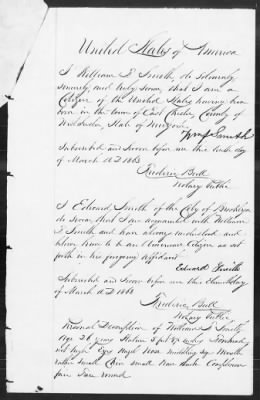 United States of America
I William E Smith, do solemnly
sincerely, and truly swear, that I am a
Citizen of the United States having been
born in the town of East Chester, County of
Westchester, State of New York
Wm E Smith
Subscribed and Sworn before me this day
of March A.D. 1863
Frederic Bull
Notary Public
I Edward Smith of the City of Brooklyn
do swear, that I am acquainted with William
E Smith and have always understood and
believe him to be an American Citizen as set
forth in his foregoing affidavit
Edward Smith
Subscribed and Sworn before me this day
of March A.D. 1863
Frederic Bull
Notary Public
Personal Description of William E Smith
Age years Stature 5 feet inches Forehead
high Eyes Nose middling Mouth
rather small Chin small Hair dark Complexion
fair Face round